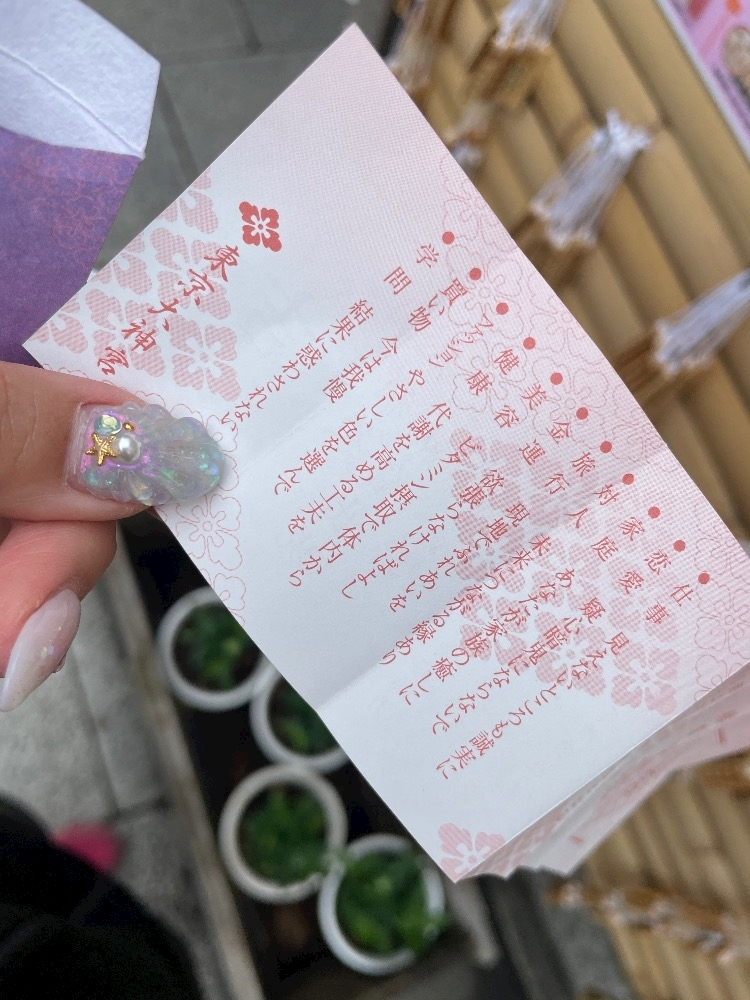 ● 仕事 見えないところも誠実に
● 恋愛 疑心暗鬼にならないで
● 家庭 あなたが家族の癒しに
● 対人 未来につながる縁あり
● 旅行 現地でふれあいを
● 金運 欲張らなければよし
● 美容 ビタミン摂取で体内から
● 健康 代謝を高める工夫を
● ファッション やさしい色を選んで
● 買い物 今は我慢
● 学問 結果に惑わされない
東京大神宮